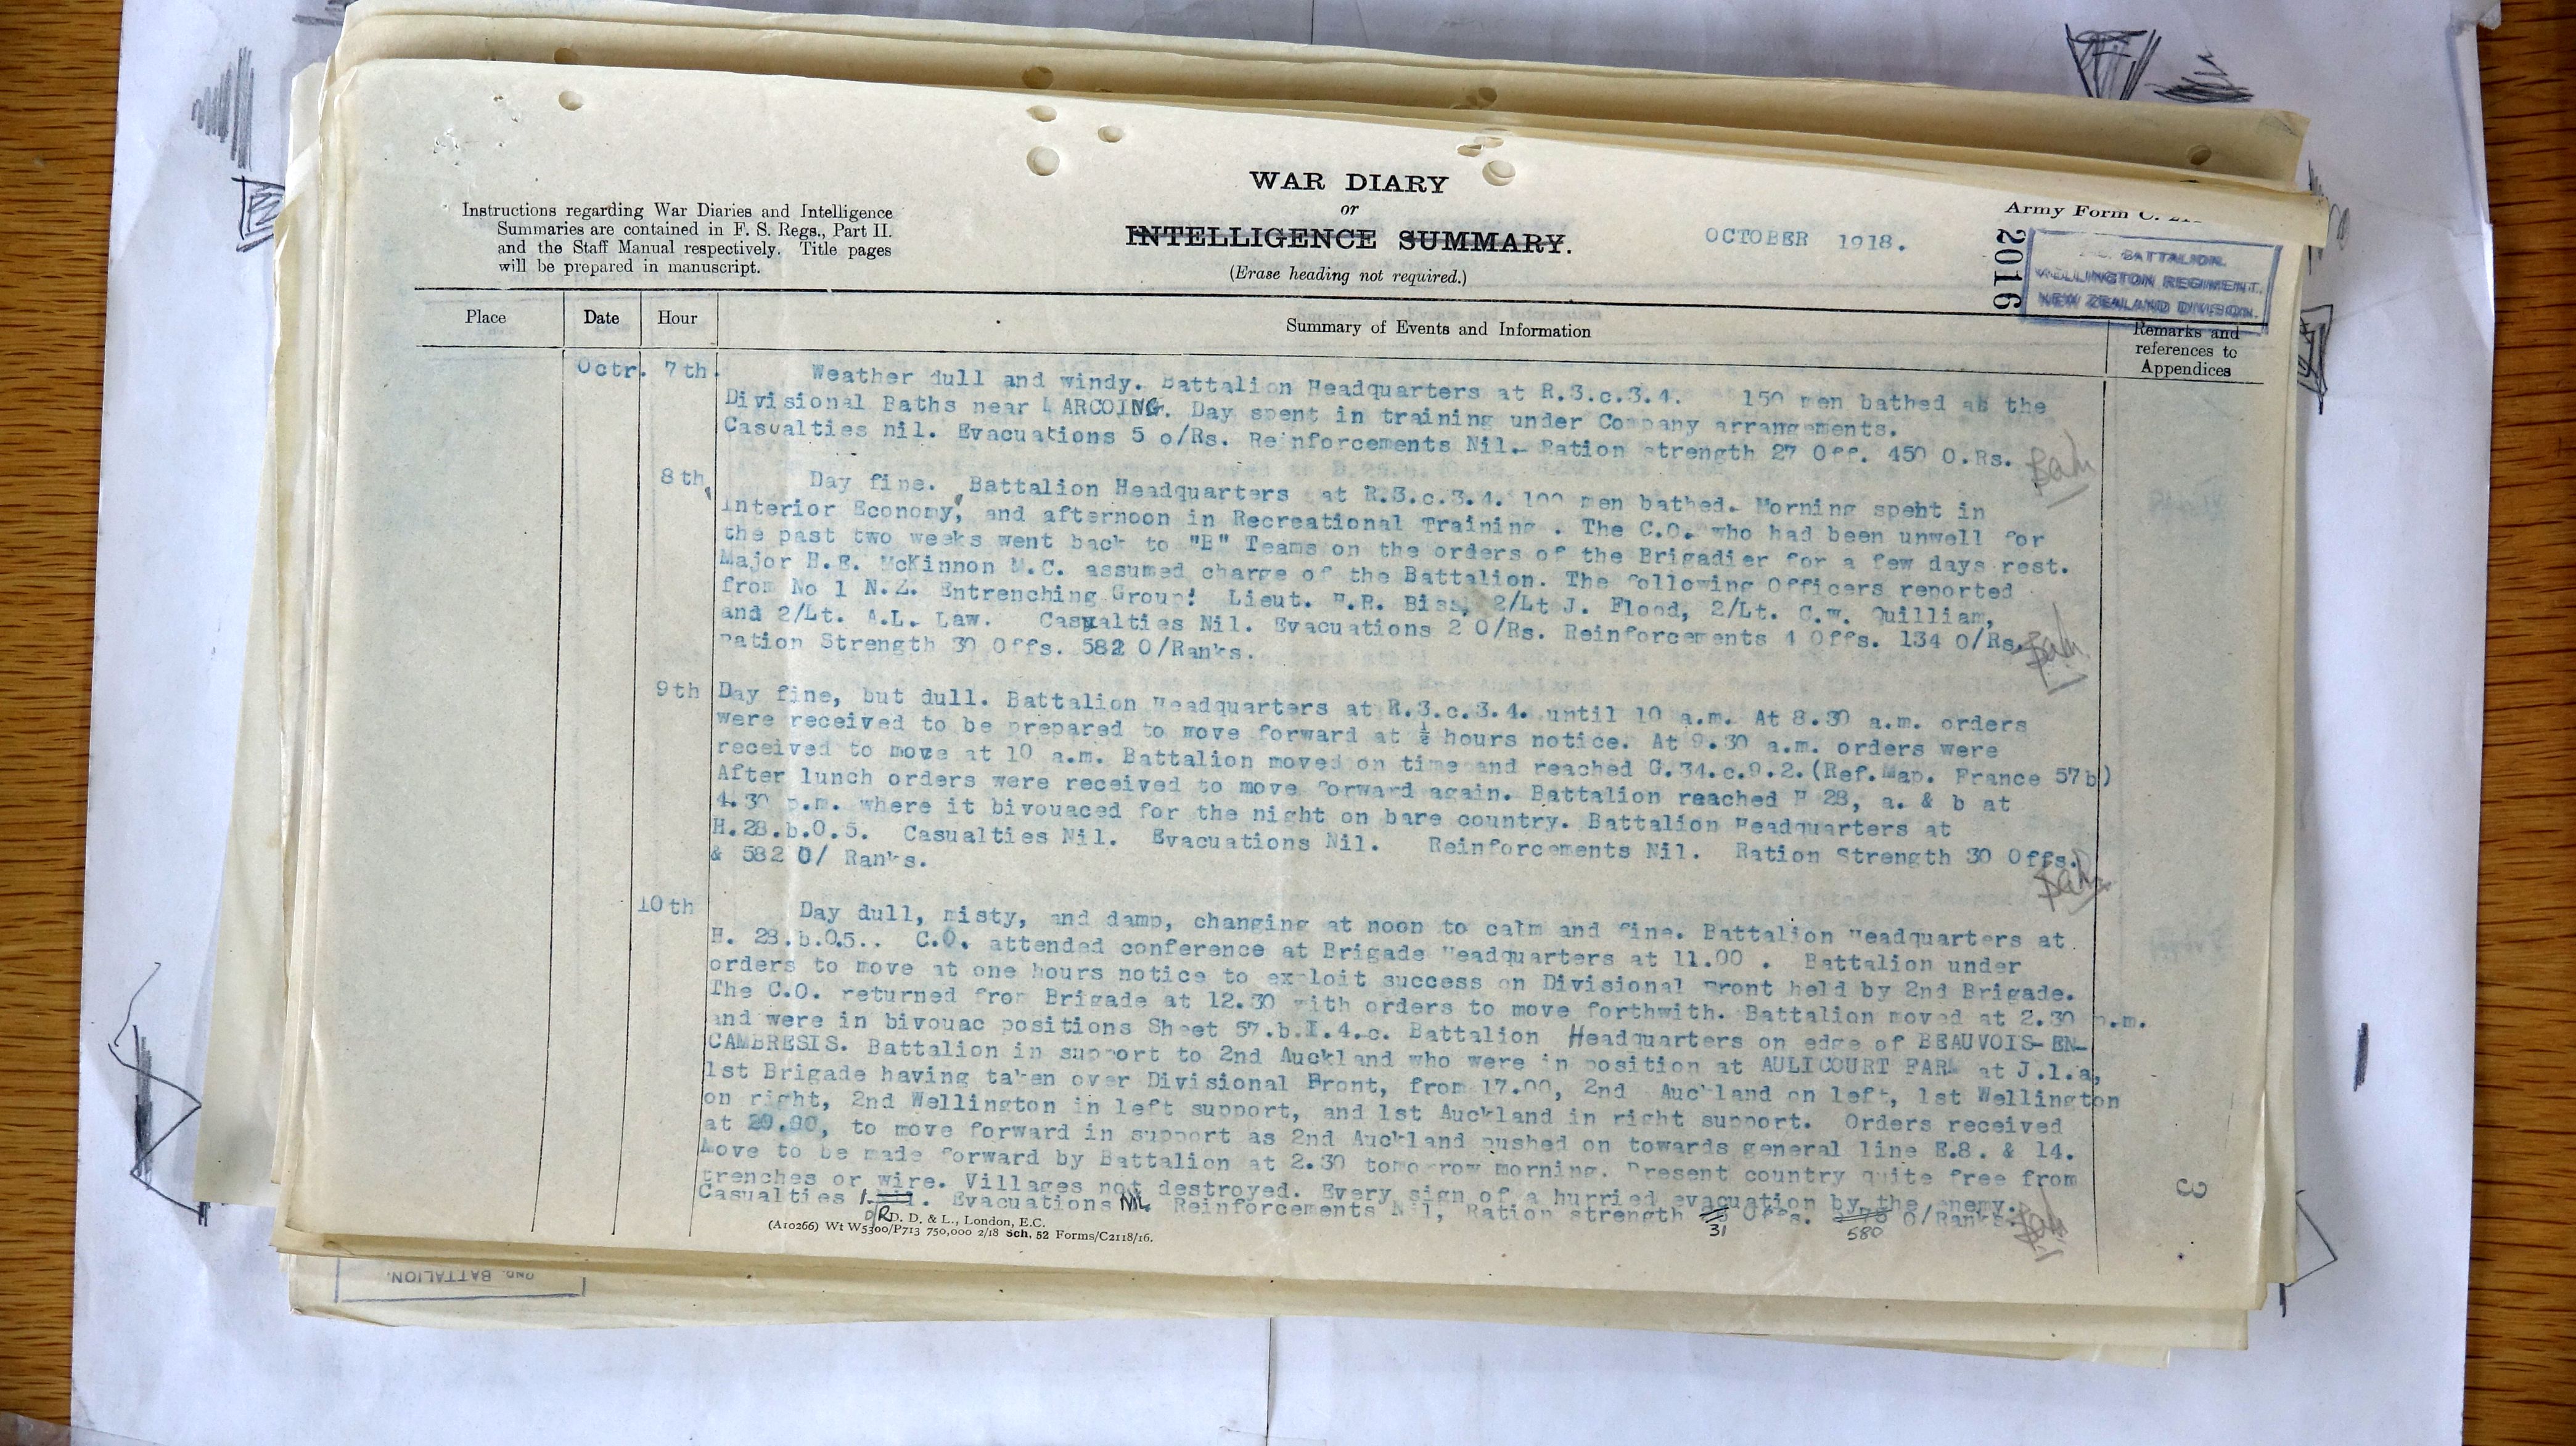 WAR DIARY
or
INTELLIGENCE SUMMARY.
(Erase heading not required.)
Instructions regarding War Diaries and Intelligence
Summaries are contained in F. S. Regs., Part II.
and the Staff Manual respectively. Title pages
will be prepared in manuscript.
OCTOBER 1918.
Army Form C.
2016
BATTALION.
WELLINGTON REGIMENT.
NEW ZEALAND DIVISION.
Place Date Hour Summary of Events and Information Remarks and
references to
Appendices
Octr. 7th. Weather dull and windy. Battalion Headquarters at R.3.c.3.4. 150 men bathed at the
Divisional Baths near MARCOING. Day spent in training under Company arrangements.
Casualties nil. Evacuations 5 o/Rs. Reinforcements Nil. Ration strength 27 Off. 450 O.Rs.
8th Day fine. Battalion Headquarters at R.3.c.3.4. 100 men bathed. Morning spent in
Interior Economy, and afternoon in Recreational Training. The C.O. who had been unwell for
the past two weeks went back to "B" Teams on the orders of the Brigadier for a few days rest.
Major H.E. McKinnon M.C. assumed charge of the Battalion. The following Officers reported
from No 1 N.Z. Entrenching Group: Lieut. H.R. Biss, 2/Lt J. Flood, 2/Lt. C.W. Quilliam,
and 2/Lt. A.L. Law. Casualties Nil. Evacuations 2 O/Rs. Reinforcements 4 Offs. 134 O/Rs.
Ration Strength 30 Offs. 582 O/Ranks.
9th Day fine, but dull. Battalion Headquarters at R.3.c.3.4. until 10 a.m. At 8.30 a.m. orders
were received to be prepared to move forward at ½ hours notice. At 9.30 a.m. orders were
received to move at 10 a.m. Battalion moved on time and reached G.34.c.9.2.(Ref.Map. France 57b)
After lunch orders were received to move forward again. Battalion reached H 28, a. & b at
4.30 p.m. where it bivouaced for the night on bare country. Battalion Headquarters at
H.28.b.0.5. Casualties Nil. Evacuations Nil. Reinforcements Nil. Ration Strength 30 Offs.
& 582 O/ Ranks.
10th Day dull, misty, and damp, changing at noon to calm and fine. Battalion Headquarters at
H. 28.b.0.5.. C.O. attended conference at Brigade Headquarters at 11.00 . Battalion under
orders to move at one hours notice to exploit success on Divisional Front held by 2nd Brigade.
The C.O. returned from Brigade at 12.30 with orders to move forthwith. Battalion moved at 2.30 p.m.
and were in bivouac positions Sheet 57.b.I.4.c. Battalion Headquarters on edge of BEAUVOIS-EN-
CAMBRESIS. Battalion in support to 2nd Auckland who were in position at AULICOURT FARM at J.1.a,
1st Brigade having taken over Divisional Front, from 17.00, 2nd Auckland on left, 1st Wellington
on right, 2nd Wellington in left support, and 1st Auckland in right support. Orders received
at 20.00, to move forward in support as 2nd Auckland pushed on towards general line E.8. & 14.
Move to be made forward by Battalion at 2.30 tomorrow morning. Present country quite free from
trenches or wire. Villages not destroyed. Every sign of a hurried evacuation by the enemy.
Casualties 1 OR. Evacuations Nil. Reinforcements Nil, Ration strength Offs. O/Ranks.
31 580
D. D. & L., London, E.C.
(A10266) Wt W5300/P713 750,000 2/18 Sch. 52 Forms/C2118/16.
3
2ND. BATTALION.